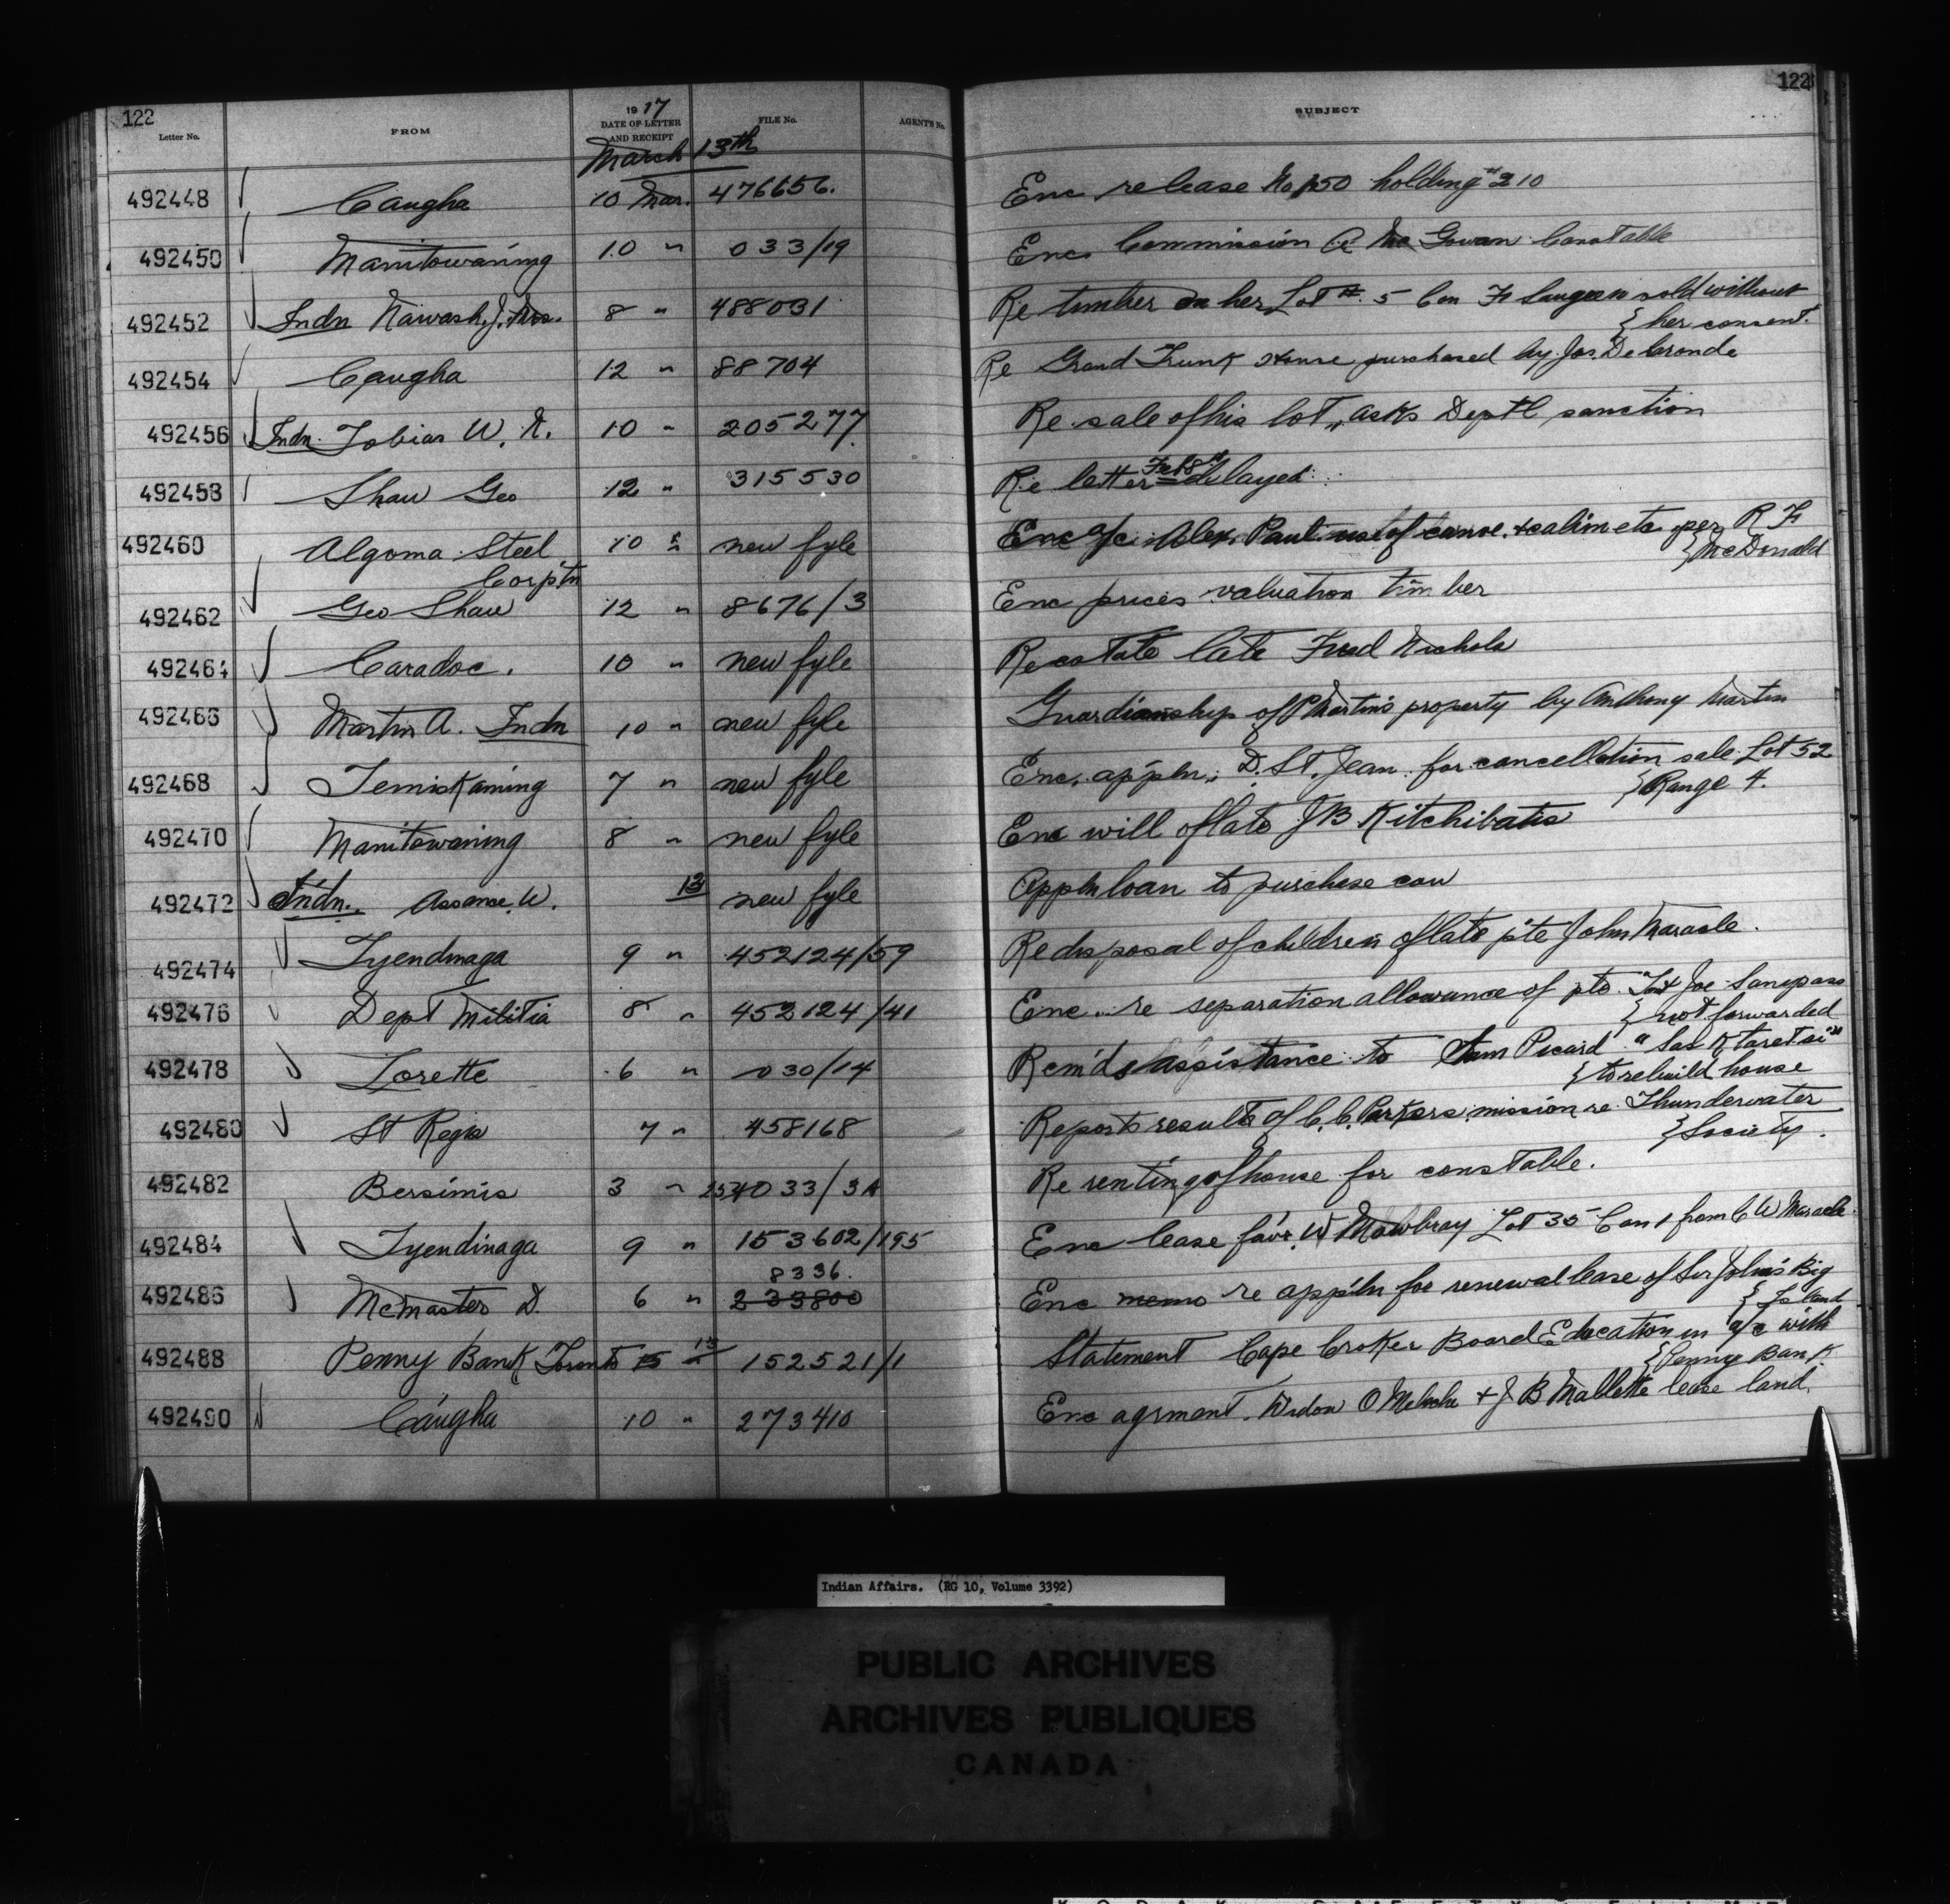 122
122
Letter No. FROM 1917 DATE OF LETTER AND RECEIPT FILE No. AGENT'S No. SUBJECT
March 13th
492448 Caugha 10 Mar. 476656. Enc release No 150 holding #210
492450 Manitowaning 10 " 033/19 Enc Commission A Mc Gowan Constable
492452 Indn Nawash, J. Mrs. 8 " 488031 Re timber on her Lot # 5 Con F Saugeen sold without
{her consent.
492454 Caugha 12 " 88704 Re Grand Trunk stone purchased by Jos. DeLaronde
492456 Indn. Tobias W. N. 10 " 205277 Re sale of his lot, asks Deptl sanction
492458 Shaw Geo 12 " 315530 Re letter Feb 8th delayed
492460 Algoma Steel 10 " new fyle Enc a/c Alex. Paul use of canoe etc per R F
Corptn {McDonald
492462 Geo Shaw 12 " 8676/3 Enc prices valuation timber
492464 Caradoc. 10 " new fyle Re estate late Fred Nichols
492466 Martin A. Indn 10 " new fyle Guardianship of P Martin's property by Anthony Martin
492468 Temiskaming 7 " new fyle Enc. appln. D. St. Jean for cancellation sale Lot 52
{Range 4.
492470 Manitowaning 8 " new fyle Enc will of late J B Kitchibatis
492472 Indn. Assance W. 13 new fyle Appln loan to purchase cow
492474 Tyendinaga 9 " 452124/59 Re disposal of children of late pte John Maracle.
492476 Dept Militia 8 " 452124/41 Enc re separation allowance of pte Joe Sanipass
{not forwarded
492478 Lorette 6 " 030/14 Remds assistance to Sam Picard "Sas K taretsi"
{to rebuild house
492480 St Regis 7 " 458168 Reports results of C. C. Parkers mission re Thunderwater
{Society.
492482 Bersimis 3 " 254033/3A Re renting of house for constable.
492484 Tyendinaga 9 " 153602/195 Enc lease favr W Mowbray Lot 35 Con 1 from C W Maracle
8336.
492486 McMaster D. 6 " 233800 Enc memo re appln for renewal lease of Sir John's Big
{Island
492488 Penny Bank Toronto 15 " 13 152521/1 Statement Cape Croker Board Education in a/c with
{Penny Bank
492490 Caugha 10 " 273410 Enc agrment. Widow O Meloche + J B Mallette lease land.
Indian Affairs. (RG 10, Volume 3392)
PUBLIC ARCHIVES
ARCHIVES PUBLIQUES
CANADA